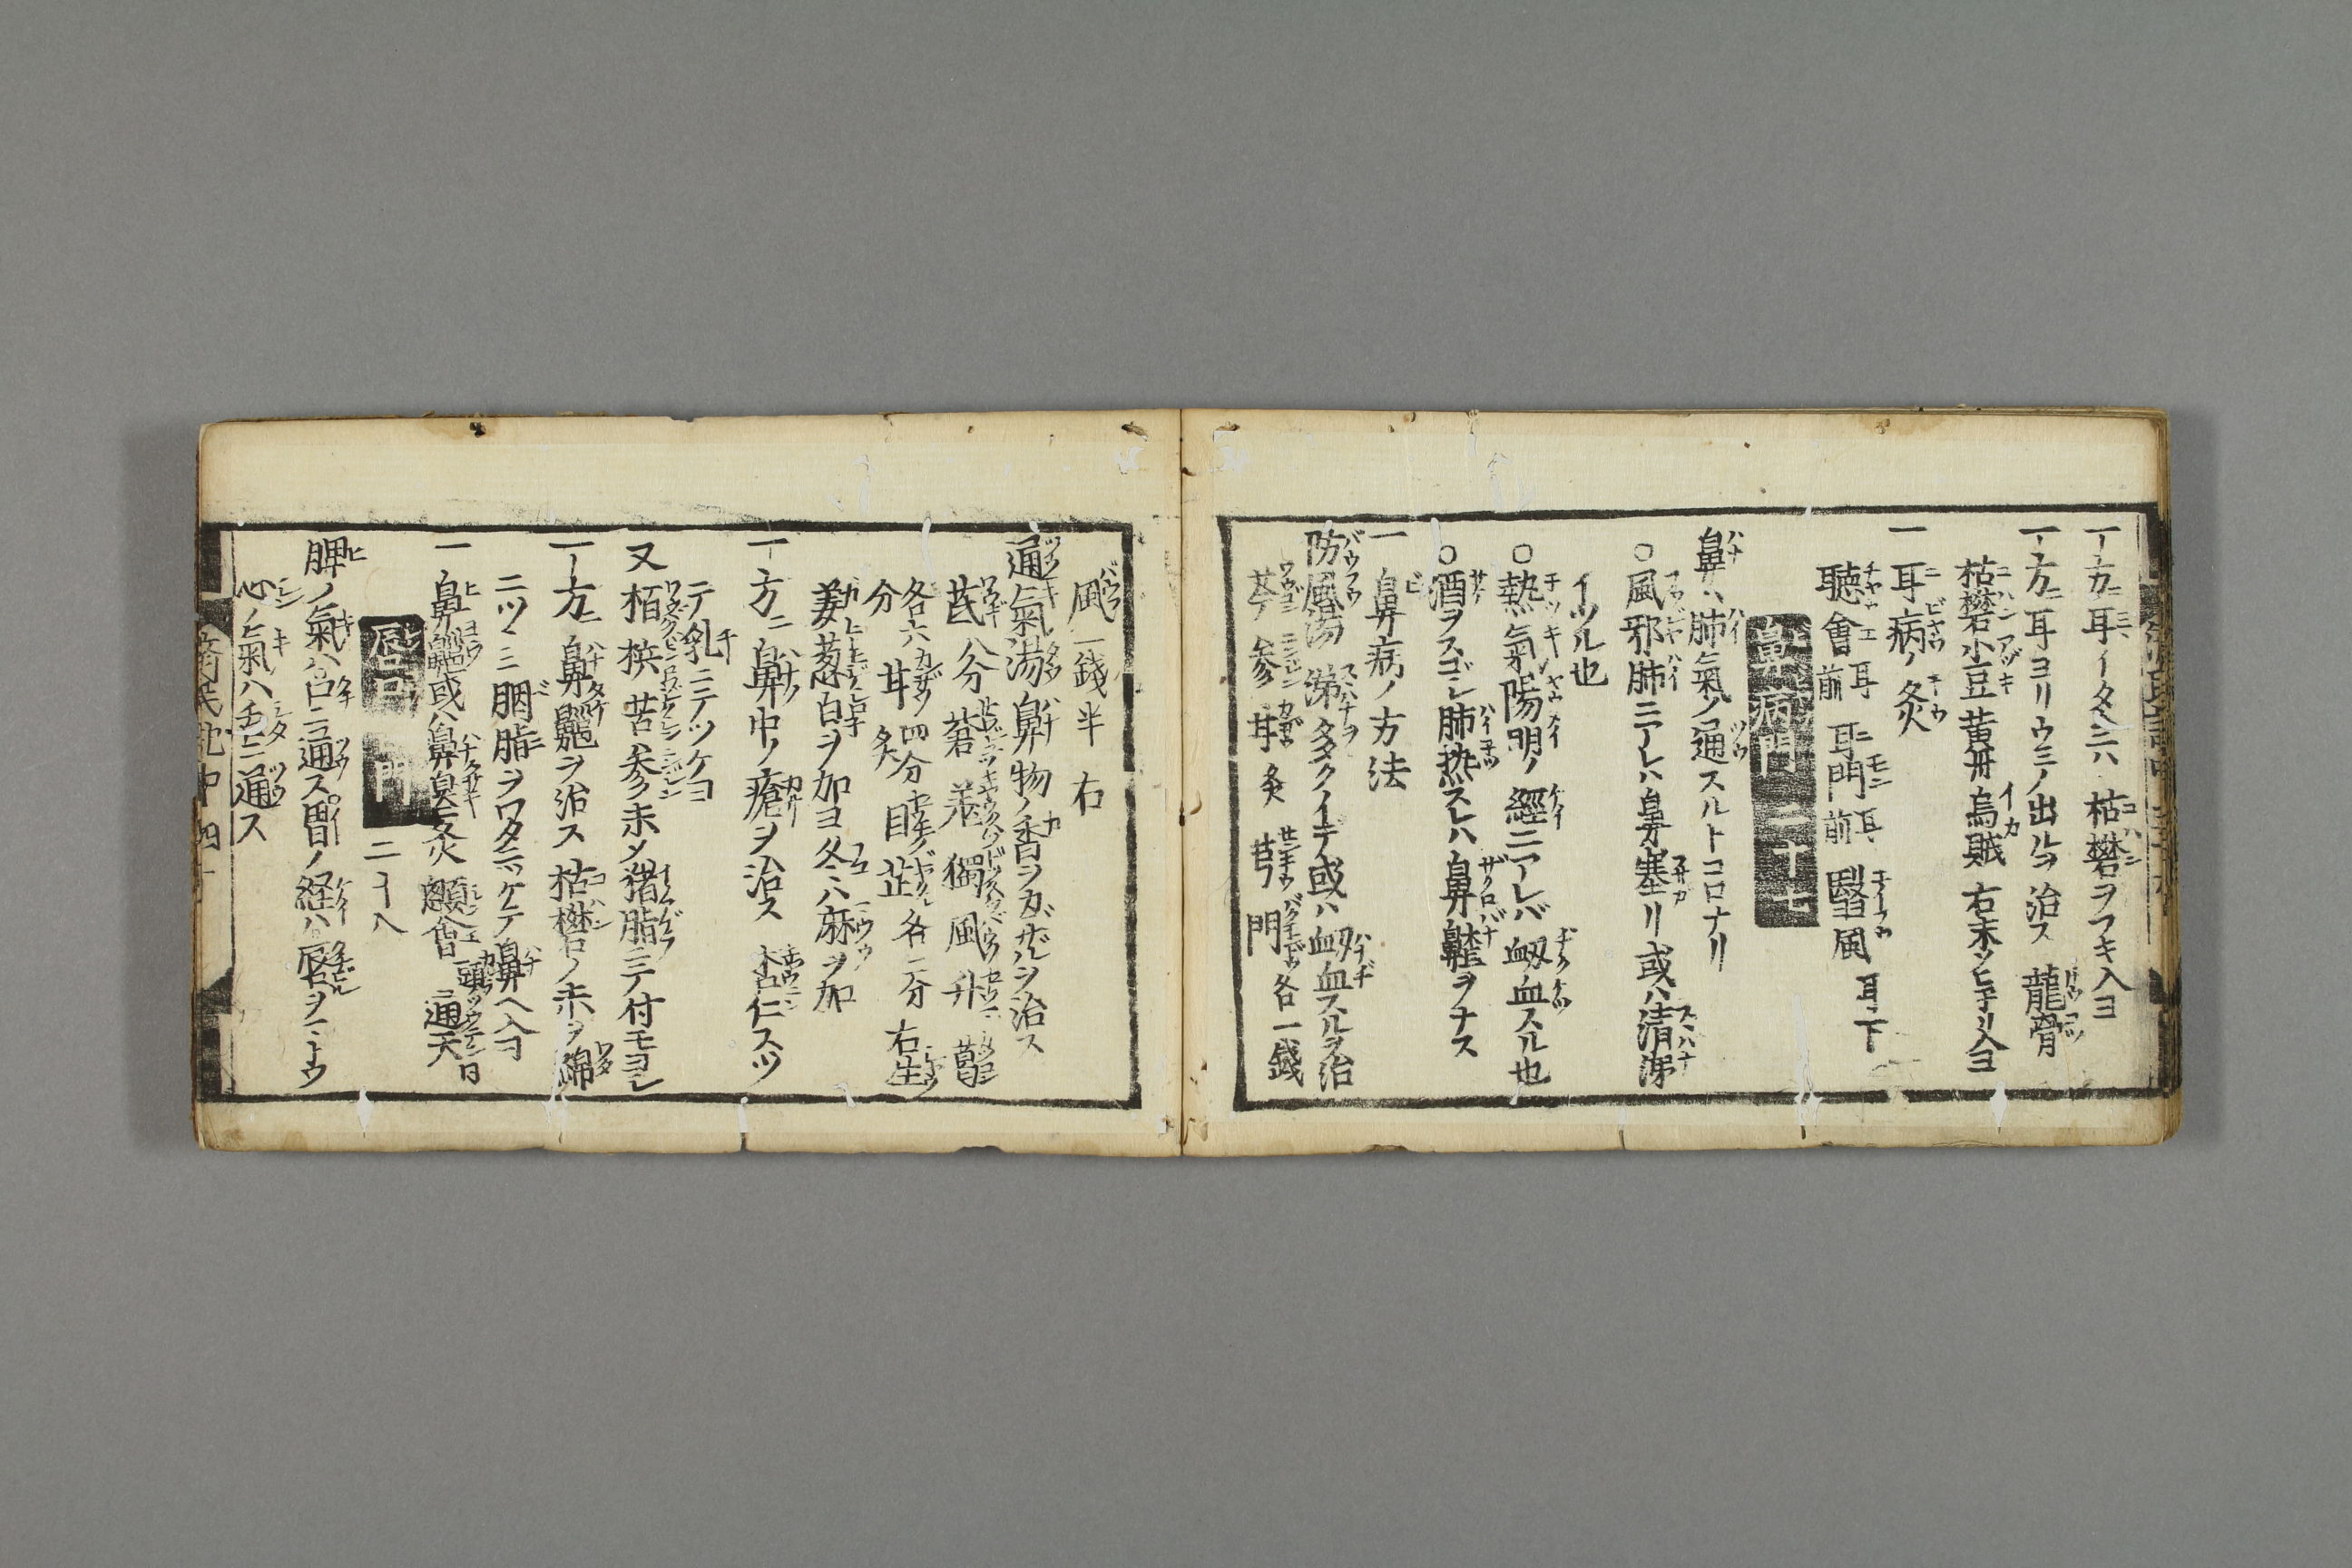 一方ニ耳イタムニハ枯礬ヲフキ入ヨ
一方ニ耳ヨリウミノ出ルヲ治ス 龍骨
枯礬 小豆 黄丹 烏賊 右末シヒネリ入ヨ
一 耳病ノ灸
聴會 耳前 耳門 耳前 翳風 耳下
鼻病門 二十七
鼻ハ肺氣ノ通スルトコロナリ
○風邪肺ニアレハ鼻塞リ或ハ清涕
イツル也
○熱氣陽明ノ經ニアレバ衂血スル也
○酒ヲスゴシ肺熱スレハ鼻齄ヲナス
一 鼻病ノ方法
防風湯 涕多クイデ或ハ衂血スルヲ治
芩 參 甘 炙 芎 門 各一錢
風 二錢半 右
通氣湯 鼻物ノ香ヲカガザルヲ治ス
芪 八分 蒼 羌 獨 風 升 葛
各六分 甘 炙 四分 芷 各二分 右生
姜葱白ヲ加ヨ冬ハ麻ヲ加
一方ニ鼻中ノ瘡ヲ治ス 杏仁スツ
テ乳ニテツケヨ
又 栢 槟 苦參末メ猪脂ニテ付モヨシ
一方ニ鼻齆ヲ治ス 枯礬ノ末ヲ綿
ニツヽミ胭脂ヲワタニツケテ鼻ヘ入ヨ
一 鼻齆或ハ鼻臭ニ灸 顖會 頭 通天
唇口門 二十八
脾ノ氣ハ口ニ通ス胃ノ経ハ唇ヲマトウ
心ノ氣ハ舌ニ通ス